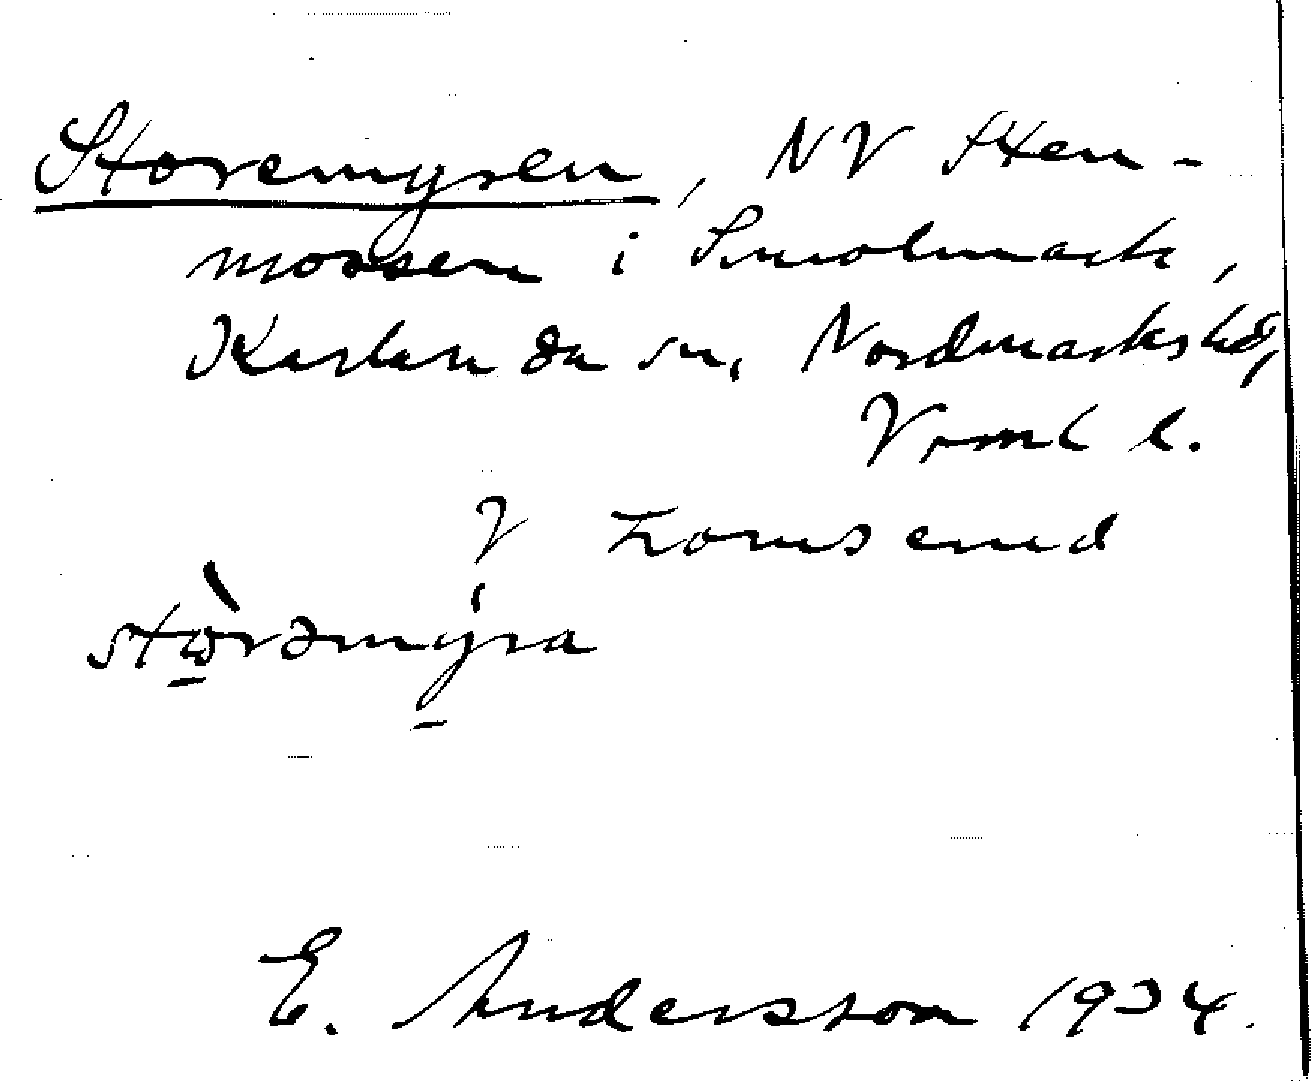 Storemyren, NV Sten-
mossen i Smolmark,
Karlanda sn, Nordmarks hd,
Vrml l.
V Lomserud
stòrəmyra
E. Andersson 1934.